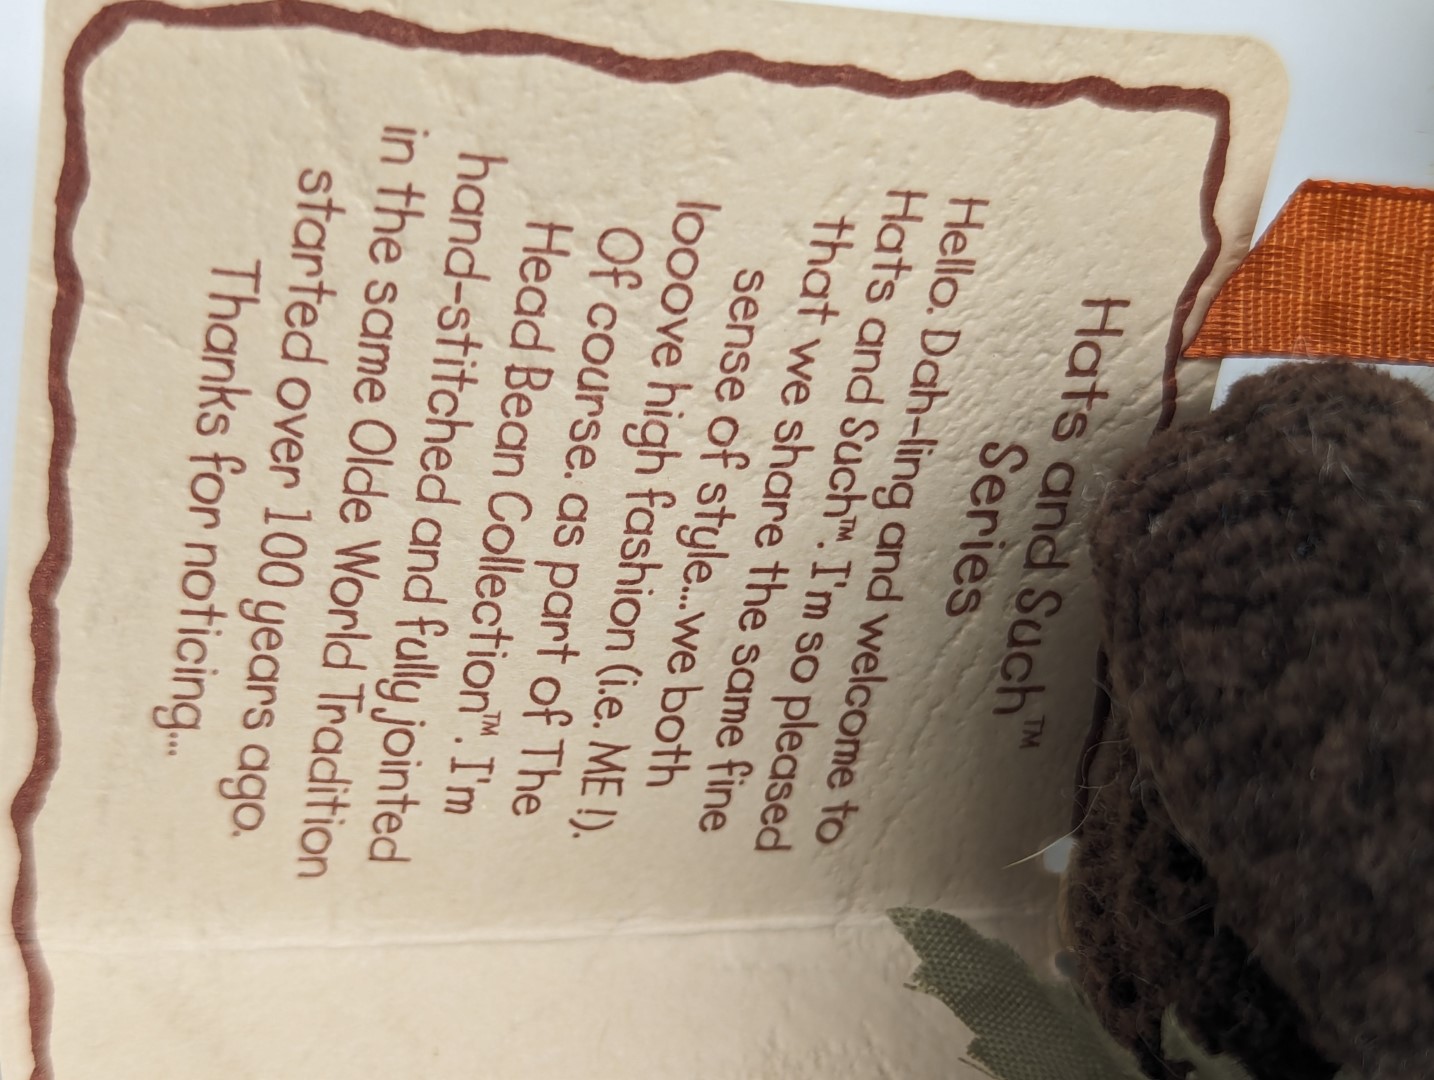 Hats and Such™
Series
Hello. Dah-ling and welcome to
Hats and Such™. I'm so pleased
that we share the same fine
sense of style...we both
looove high fashion (i.e. ME !).
Of course. as part of The
Head Bean Collection™. I'm
hand-stitched and fully jointed
in the same Olde World Tradition
started over 100 years ago.
Thanks for noticing...